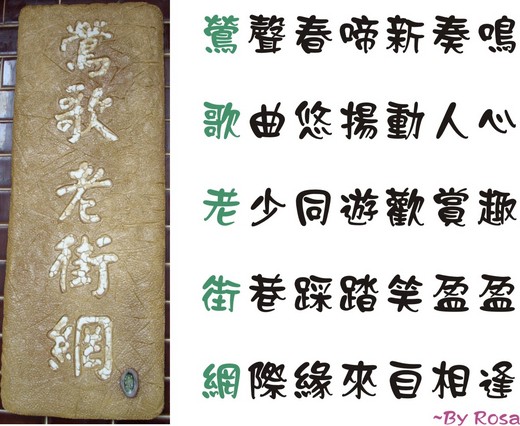 鶯歌老街網
鶯聲春啼新奏鳴
歌曲悠揚動人心
老少同遊歡賞趣
街巷踩踏笑盈盈
網際緣來亘相逢
~By Rosa